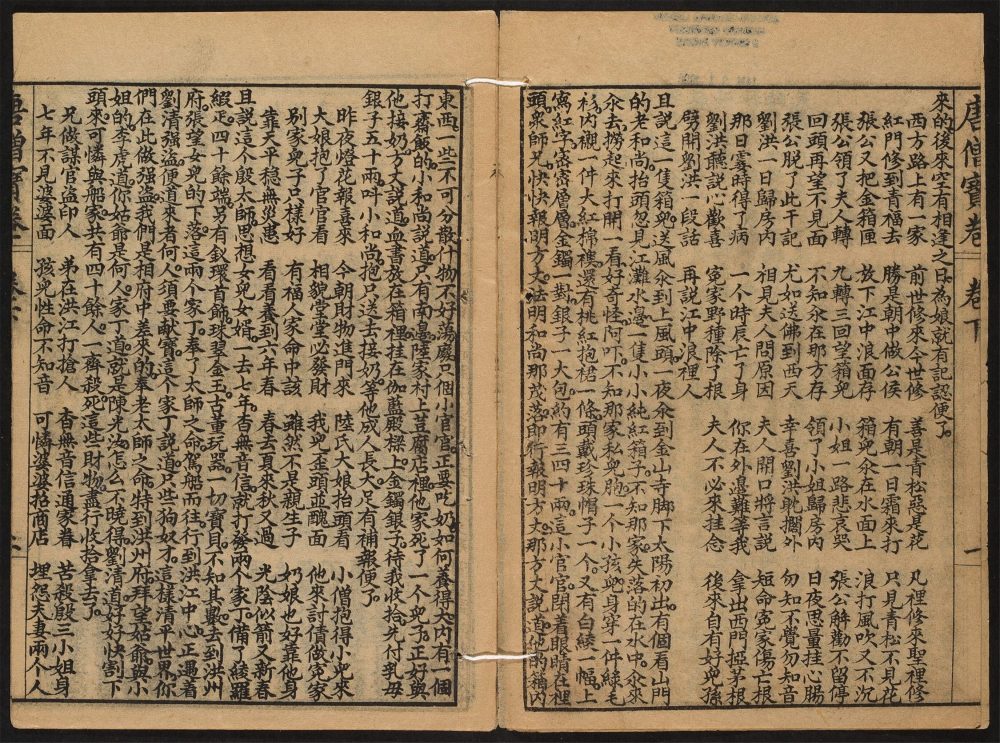 唐僧寶卷 卷下 一
來的後來空有相逢之日為娘就有記認便了
西方路上有一家 前世修來今世修 善是青松惡是花 凡裡修來聖裡修
紅門修到青福去 勝是朝中做公侯 有朝一日霜來打 只見青松不見花
張公又把金箱匣 放下江中浪面存 箱兒氽在水面上 浪打風吹又不沉
張公領了夫人轉 九轉三回望箱兒 小姐一路悲哀哭 張公解勸不留停
回頭再望不見面 不知氽在那方存 領了小姐歸房內 日夜思量挂心腸
張公脫了此干記 尤如送佛到西天 幸喜劉洪躭擱外 勿知不覺勿知音
劉洪一日歸房內 相見夫人問原因 夫人開口將言說 短命冤家傷亡根
那日霎時得了病 一个時辰亡了身 你在外邊難等我 拿出西門掗茅根
劉洪聽說心歡喜 冤家野種除了根 夫人不必來挂念 後來自有好兒孫
劈開劉洪一段話 再說江中浪裡人
且說這一隻箱兒送風氽到上風頭一夜氽到金山寺脚下太陽初出有個看山門
的老和尚抬頭忽見江灘水邊一隻小小純紅箱子不知那家失落的在水中氽來
氽去撈起來打開一看好奇怪阿吓不知那家私兜胞一个小孩兒身穿一件綠毛
衫內襯一件大紅棉襖還有桃紅抱裙一條頭戴珍珠帽子一个又有白綾一幅上
寫紅字密密層層金鐲一對銀子一大包約有三四十兩這小官官閉着眼睛在裡
頭衆師兄快快報明方丈法明和尚那茂落即行報明方丈那方丈說道他的箱內
東西一些不可分散什物不好蕩廢只個小官官正要吃奶如何養得大內有一個
打齋飯的小和尚說道只有南邊陸家村上荳腐店裡他家死了一个兒子正好與
他接奶方丈說道血書放在箱裡挂在伽藍殿樑上金鐲銀子待我收拾先付乳母
銀子五十兩叫小和尚抱只送去接奶等他成人長大足有補報便了
昨夜燈花報喜來 今朝財物進門來 陸氏大娘抬頭看 小僧抱得小兒來
大娘抱了官官看 相貌堂堂必發財 我兒歪頭並醜面 他來討債做冤家
別家兒子只樣好 有福人家命中該 雖然不是親生子 奶娘也好靠他身
靠天平穩無災患 看看養到六年春 春去夏來秋又過 光陰似箭又新春
且說這个殷太師思想女兒女婿一去七年杳無音信就打發兩个家丁備了綾羅
緞疋四十餘端另有釵環首飾珠翠金玉古董玩器一切寶貝不知其數去到洪州
府張望女兒的下落這兩个家丁奉了太師之命駕船而往行到洪江中心正遇着
劉清强盜便道來者何人須要献寶這个家丁說道只些狗奴才這樣清平世界你
們在此做强盜我們是相府中差來的奉老太師之命特到洪州府拜望姑爺與小
姐的李虎道你姑爺是何人家丁道就是陳光汝怎么不曉得劉清道好好快割下
頭來可憐與船家共有四十餘人一齊殺死這些財物盡行收拾拿去了
兄做謀官盜印人 弟在洪江打搶人 杳無音信通家眷 苦殺殷三小姐身
七年不見婆婆面 孩兒性命不知音 可憐婆婆招商店 埋怨夫妻兩个人
唐僧寶卷